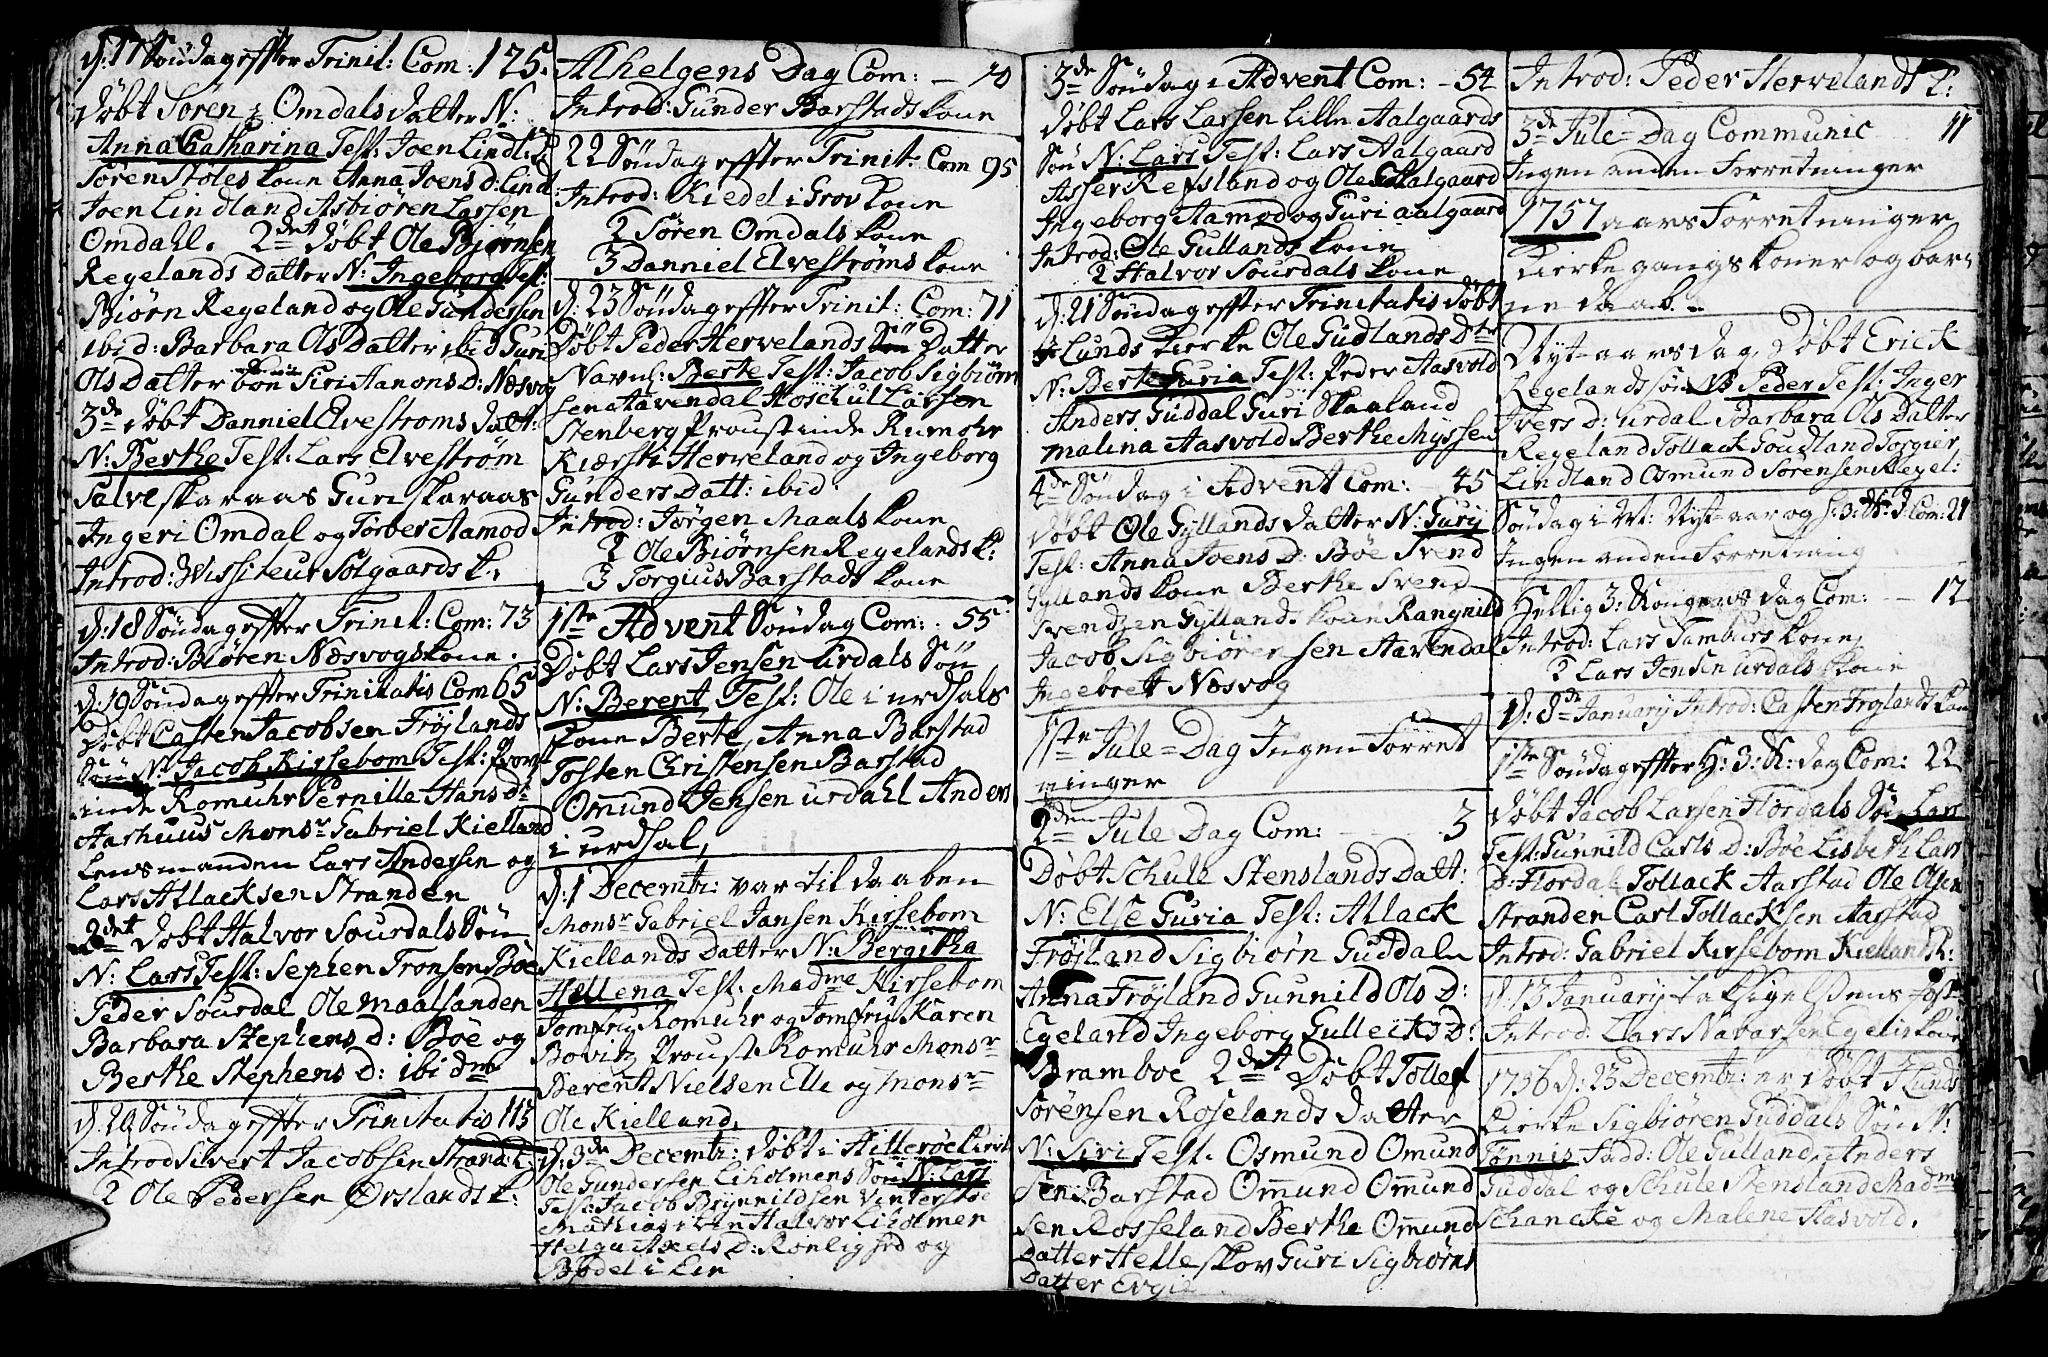 d: 17 Søndag effter Trinit: Com: 125.
døbt Søren i Omdals datter N:
Anna Catharina Test: Joen Lindl:
Søren Stoles kone Anna Joens d: Lind
Joen Lindland Asbiøren Larsen
Omdahl. 2det døbt Ole Bjørnsen
Regelands datter N: Ingeborg Test:
Biørn Regeland og Ole Gundersen
ibid: Barbara Ols Datter ibid Guri
Ols Datter Siri Aanons D: Næsvog
3de døbt Danniel Elvestroms datt:
N: Berthe Test: Lars Elvestrøm
Salve skaraas Guri skaraas
Ingeri Omdal og Torber Aamod
Introd: Wissiteur Solgaards k.
d: 18 Søndag effter Trinit: Com: 73
Introd: Biøren Næsvogs kone.
d: 19 Søndag effter Trinitatis Com 65
Døbt Casten Jacobsen Frøjlands
Søn N: Jacob Kirsebom Test: Provst
inde Romuhr Pernille Hans D:
Aarhuus Monsr Gabriel Kielland
Lensmanden Lars Andersen og
Lars Atlacksen Stranden
2det døbt Halvor Sourdals Søn
N: Lars Test: Sephen Tronsen Bøe
Peder Sourdal Ole Maalsanden
Barbara Stephens D: Bøe og
Berthe Stephens D: ibidm
d. 20 Søndag effter Trinitatis 115
Introd Silvert Jacobsen Strand: k:
2 Ole Pedersen Ørslands k:
Alhelgens Dag Com: — 70
Introd: Gunder Barstads kone
22 Søndag effter Trinit: Com 95
Introd: Kiedel i Grov kone
2 Søren Omdals kone
3 Danniel Elvestroms kone
d: 23 Søndag effter Trinit: Com: 71
Døbt Peder Hervelands Søn Datter
Navnl: Berte Test: Jacob Sigbiørn
sen Aavendal Larsen
Stenberg Proustinde Rumohr
Kiersti Herveland og Ingeborg
Gunders Datt: ibid.
Introd: Jørgen Maals kone
2 Ole Biørnsen Regelands k:
3 Torgius Barstads kone
1ste Advent Søndag Com: 55
Døbt Lars Jensen Urdals Søn
N: Berent Test: Ole i urdhals
kone Berte, Anna Barstad
Tosten Christensen Barstad
Omund Jensen urdahl Anders
i urdhal,
d: 1 Decembr: var til daaben
Monsr Gabriel Jansen Kirsebom
Kiellands Datter N: Bergitha
Hellena Test. Madme Kirsebom
Jomfru Romuhr og Jomfru Karen
Bovitz Proust Romuhr Monsr
Berent Nielsen Elle og Monsr
Ole Kielland.
d: 3de Decembr: døbt i Hitterøe kirck
Ole Gundersen Liholmens Søn N: Lars
Test: Jacob Brynnildsen Vinterstøe
Mathias i Lien Halvor Liholmen
Helga Axels D: Ronlighed og
Bodel i Lien
3de Søndag i Advent Com: — 54
døbt Lars Larsen Lille Aalgaards
Søn N: Lars Test: Lars Aalgaard
Asser Refsland og Ole Aalgaard
Ingeborg Aamod og Guri aalgaard
Introd: Ole Gullands kone
2 Halvor Sourdals kone
d: 21 Søndag effter Trinitatis døbt
i Lunds kierke Ole Gudlands Dtr
N: Berte Guria Test: Peder Aasvold
Anders Guddal Guri Skaaland
Malina Aasvold Berthe Nyssen
4de Søndag i Advent Com: — 45
døbt Ole Gyllands datter N: Gurij
Test: Anna Joens D: Bøe Svend
Gyllands kone Berthe Svend
Svendzen Gylland. kone Rangnild
Jacob Sigbiørensen Aavendal
Ingebrett Næsvog
1ste Jule=Dag Ingen Forret
ninger
2den Jule Dag Com: — 3
Døbt Schule Stenslands Datt:
N: Else Guria Test: Atlack
Frøjland Sigbiørn Guddal
Anna Frøjland Gunnild Ols D:
Egeland Ingeborg Gulleiks D:
Bramboe 2det Døbt Tollef
Sørensen Roselands datter
N: Siri Test. Osmund Omund
sen Barstad Omund Omund
sen Rosseland Berthe Omund
Datter Helleskov Guri Sigbiørns
Datter Evgie
Introd: Peder Hervelands k:
3de Jule=Dag Communic 11
Ingen anden Forretninger
1757 aars Forretninger
kierkegangs koner og bar=
ne daab.
Nyt-aars dag, Døbt Erick
Regelands søn N: Peder Test: Inger
Ivers D: urdal Barbara Ols Datter
Regeland Tollack Goudland Torgier
Lindland Osmund Sørensen Regel:
Søndag i M: Nyt-aar og h: 3: K: D Com: 21
Ingen anden Forretning
Hellig 3: Kongers dag Com: — 12
Introd: Lars Tamburs kone
2 Lars Jensen urdals kone
d: 8de January Introd: Casten Frøjlands kone
1ste Søndag effter H: 3: K: dag Com: 22
døbt Jacob Larsen Flordals Søn Lars
Test: Gunnild Carls D: Bøe Lisbeth Lars
D: Flordal Tollack Aarstad Ole Olsen
Stranden Carl Tollacksen Aarstad
Introd: Gabriel Kirsebom Kiellands k:
d. 13 January taksigelsens fest
Introd: Lars Navarsen Egelis kone
1756 d: 23 Decembr: er døbt i Lunds
kierke Sigbiøren Guddals Søn N:
Tønnis Fadd: Ole Gulland, Anders
Guddal og Schule Stensland Madme
Schancke og Malene Aasvold.